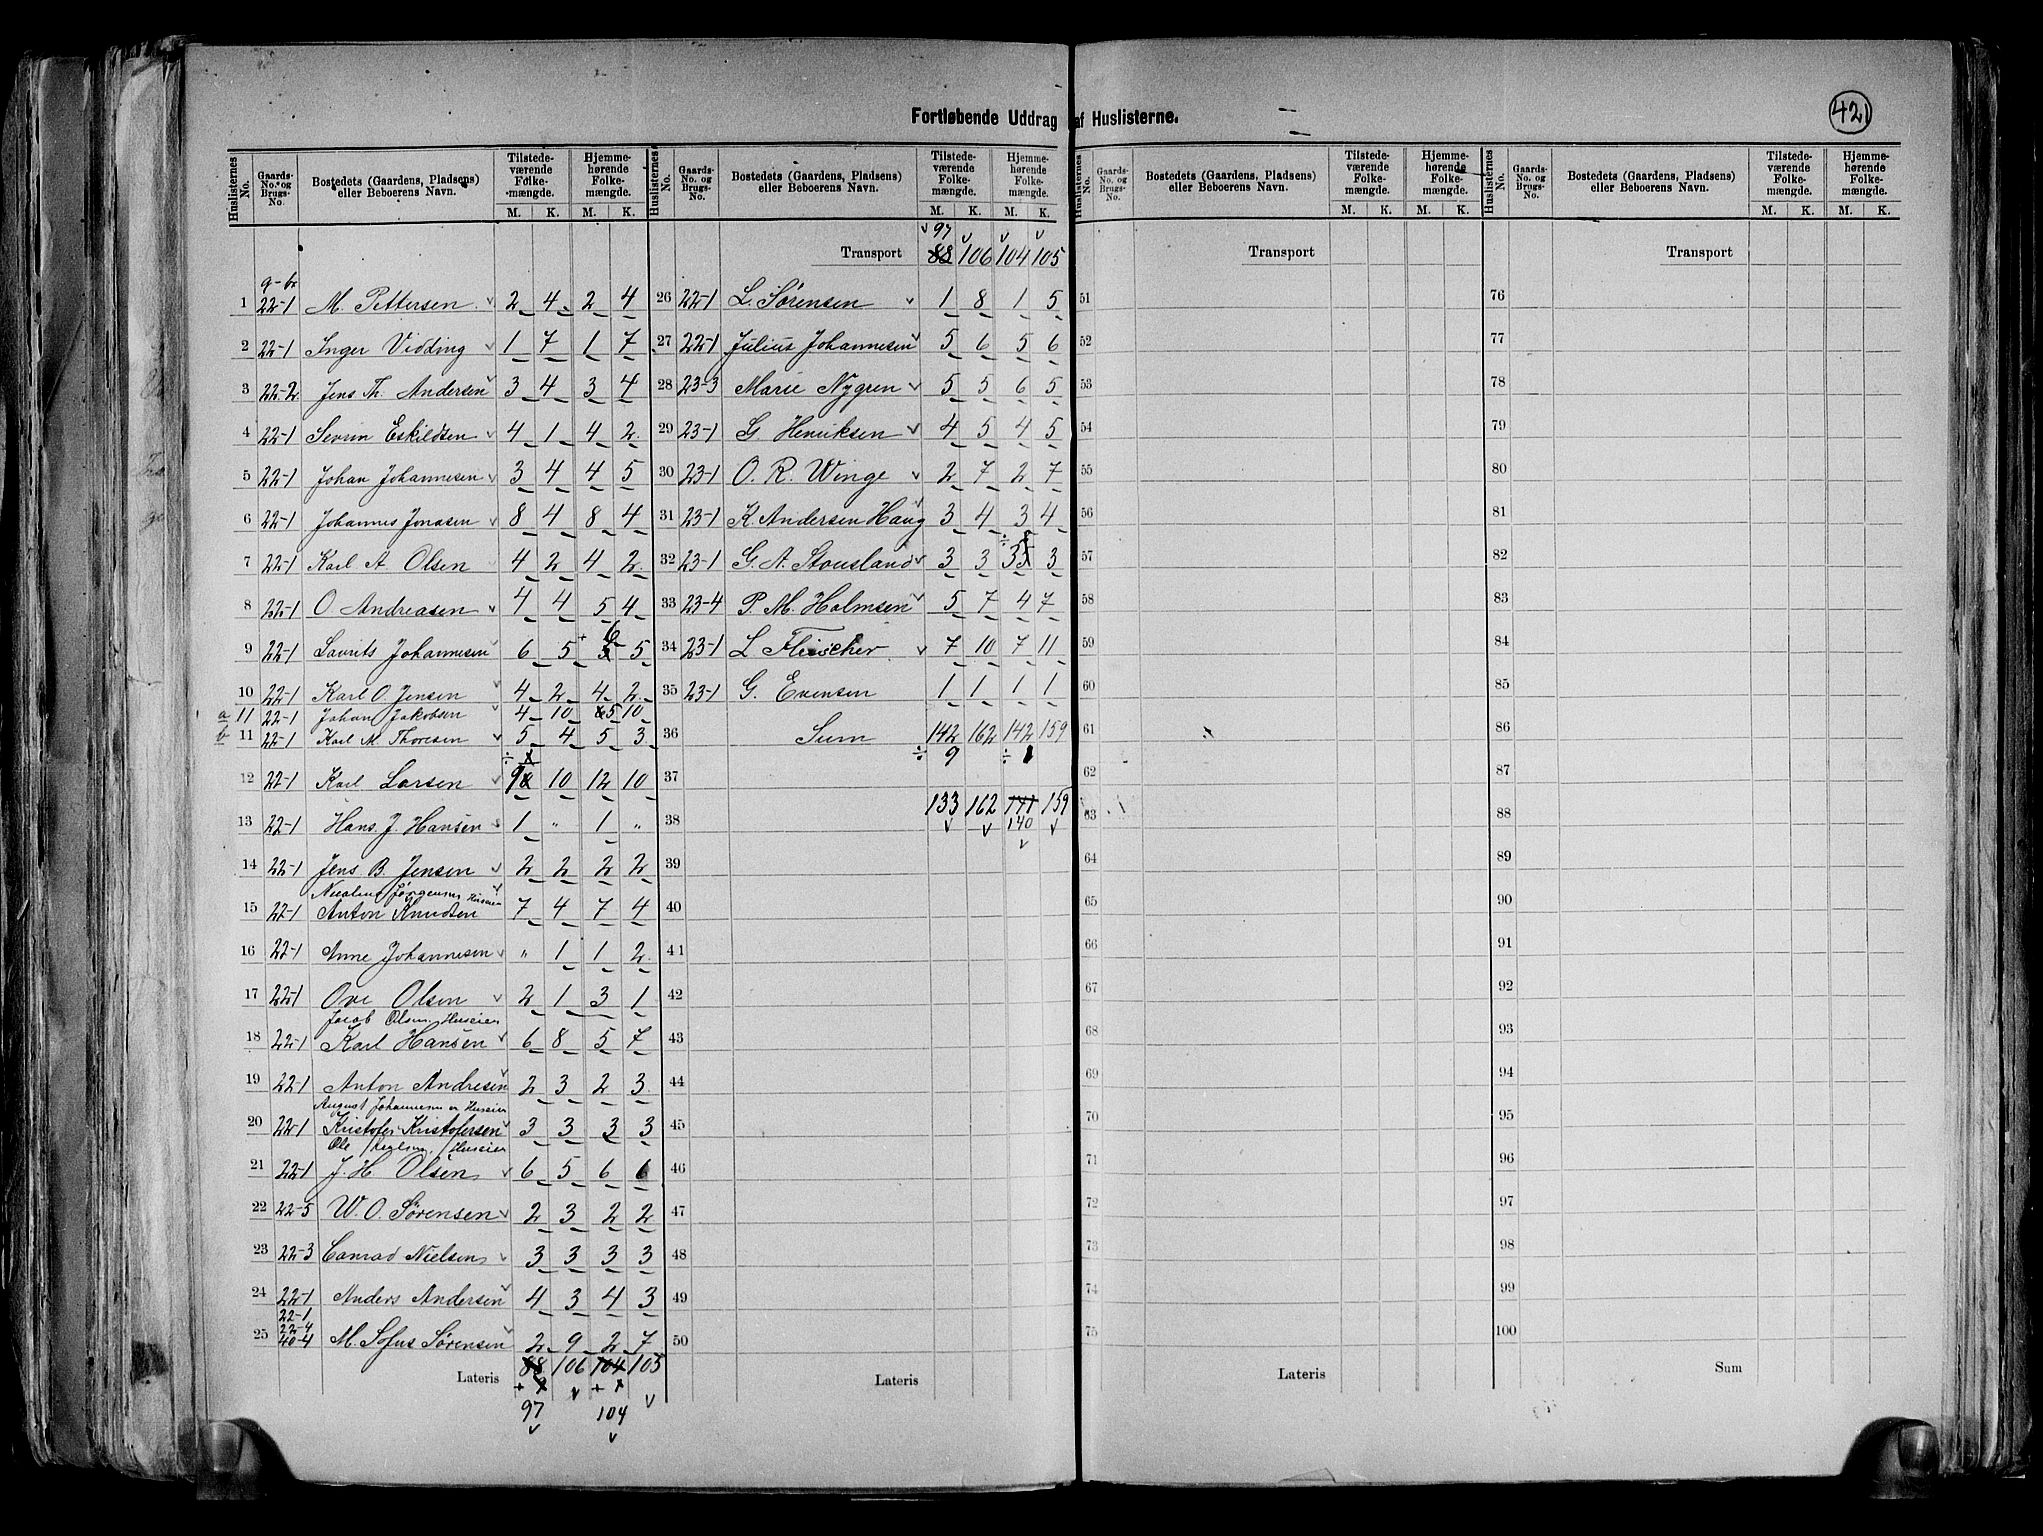 421
Fortløbende Uddrag af Huslisterne.
Huslisternes No. Gaards-No. og Brugs-No. Bostedets (Gaardens, Pladsens) eller Beboerens Navn. Tilstedeværende Folkemængde. M. K. Hjemmehørende Folkemængde. M. K.
g-br
1 22-1 M. Pettersen 2 4 2 4
2 22-1 Inger Vidding 1 7 1 7
3 22-2 Jens Th. Andersen 3 4 3 4
4 22-1 Sevrin Eskildsen 4 1 4 2
5 22-1 Johan Johannesen 3 4 4 5
6 22-1 Johannes Jonasen 8 4 8 4
7 22-1 Karl A Olsen 4 2 4 2
8 22-1 O. Andreasen 4 4 5 4
9 22-1 Laurits Johannesen 6 5 + 6 5
10 22-1 Karl O. Jensen 4 2 4 2
a 11 22-1 Johan Jakobsen 4 10 5 10
b 11 22-1 Karl M. Thoresen 5 4 5 3
12 22-1 Karl Larsen 9 10 12 10
13 22-1 Hans. J. Hansen 1 " 1 "
14 22-1 Jens B. Jensen 2 2 2 2
Jørgensen Huseier
15 22-1 Anton Knudsen 7 4 7 4
16 22-1 Anne Johannesen " 1 1 2
17 22-1 Ove Olsen 2 1 3 1
Jacob Olsen Huseier
18 22-1 Karl Hansen 6 8 5 7
19 22-1 Anton Andresen 2 3 2 3
August Johannesen er Huseier
20 22-1 Kristofer Kristofersen 3 3 3 3
Ole Huseier
21 22-1 J. H. Olsen 6 5 6 6
22 22-5 W. O. Sørensen 2 3 2 2
23 22-3 Conrad Nielsen 3 3 3 3
24 22-1 Anders Andersen 4 3 4 3
22-1
22-4
25 40-4 M. Sofus Sørensen 2 9 2 7
Lateris 88 106 104 105
97 104
Huslisternes No. Gaards-No. og Brugs-No. Bostedets (Gaardens, Pladsens) eller Beboerens Navn. Tilstedeværende Folkemængde. M. K. Hjemmehørende Folkemængde. M. K.
97
Transport 88 106 104 105
26 22-1 L. Sørensen 1 8 1 5
27 22-1 Julius Johannesen 5 6 5 6
28 23-3 Marie Nygren 5 5 6 5
29 23-1 G Henriksen 4 5 4 5
30 23-1 O. R. Winge 2 7 2 7
31 23-1 K. Andersen Haug 3 4 3 4
32 23-1 G. A. Stousland 3 3 3 3
33 23-4 P. M. Holmsen 5 7 4 7
34 23-1 L Fleischer 7 10 7 11
35 23-1 G. Evensen 1 1 1 1
36 Sum 142 162 142 159
÷ 9 ÷ 1
37
133 162 141 159
38
140
39
40
41
42
43
44
45
46
47
48
49
50
Lateris
Huslisternes No. Gaards-No. og Brugs-No. Bostedets (Gaardens, Pladsens) eller Beboerens Navn. Tilstedeværende Folkemængde. M. K. Hjemmehørende Folkemængde. M. K.
Transport
51
52
53
54
55
56
57
58
59
60
61
62
63
64
65
66
67
68
69
70
71
72
73
74
75
Lateris
Huslisternes No. Gaards-No. og Brugs-No. Bostedets (Gaardens, Pladsens) eller Beboerens Navn. Tilstedeværende Folkemængde. M. K. Hjemmehørende Folkemængde. M. K.
Transport
76
77
78
79
80
81
82
83
84
85
86
87
88
89
90
91
92
93
94
95
96
97
98
99
100
Sum